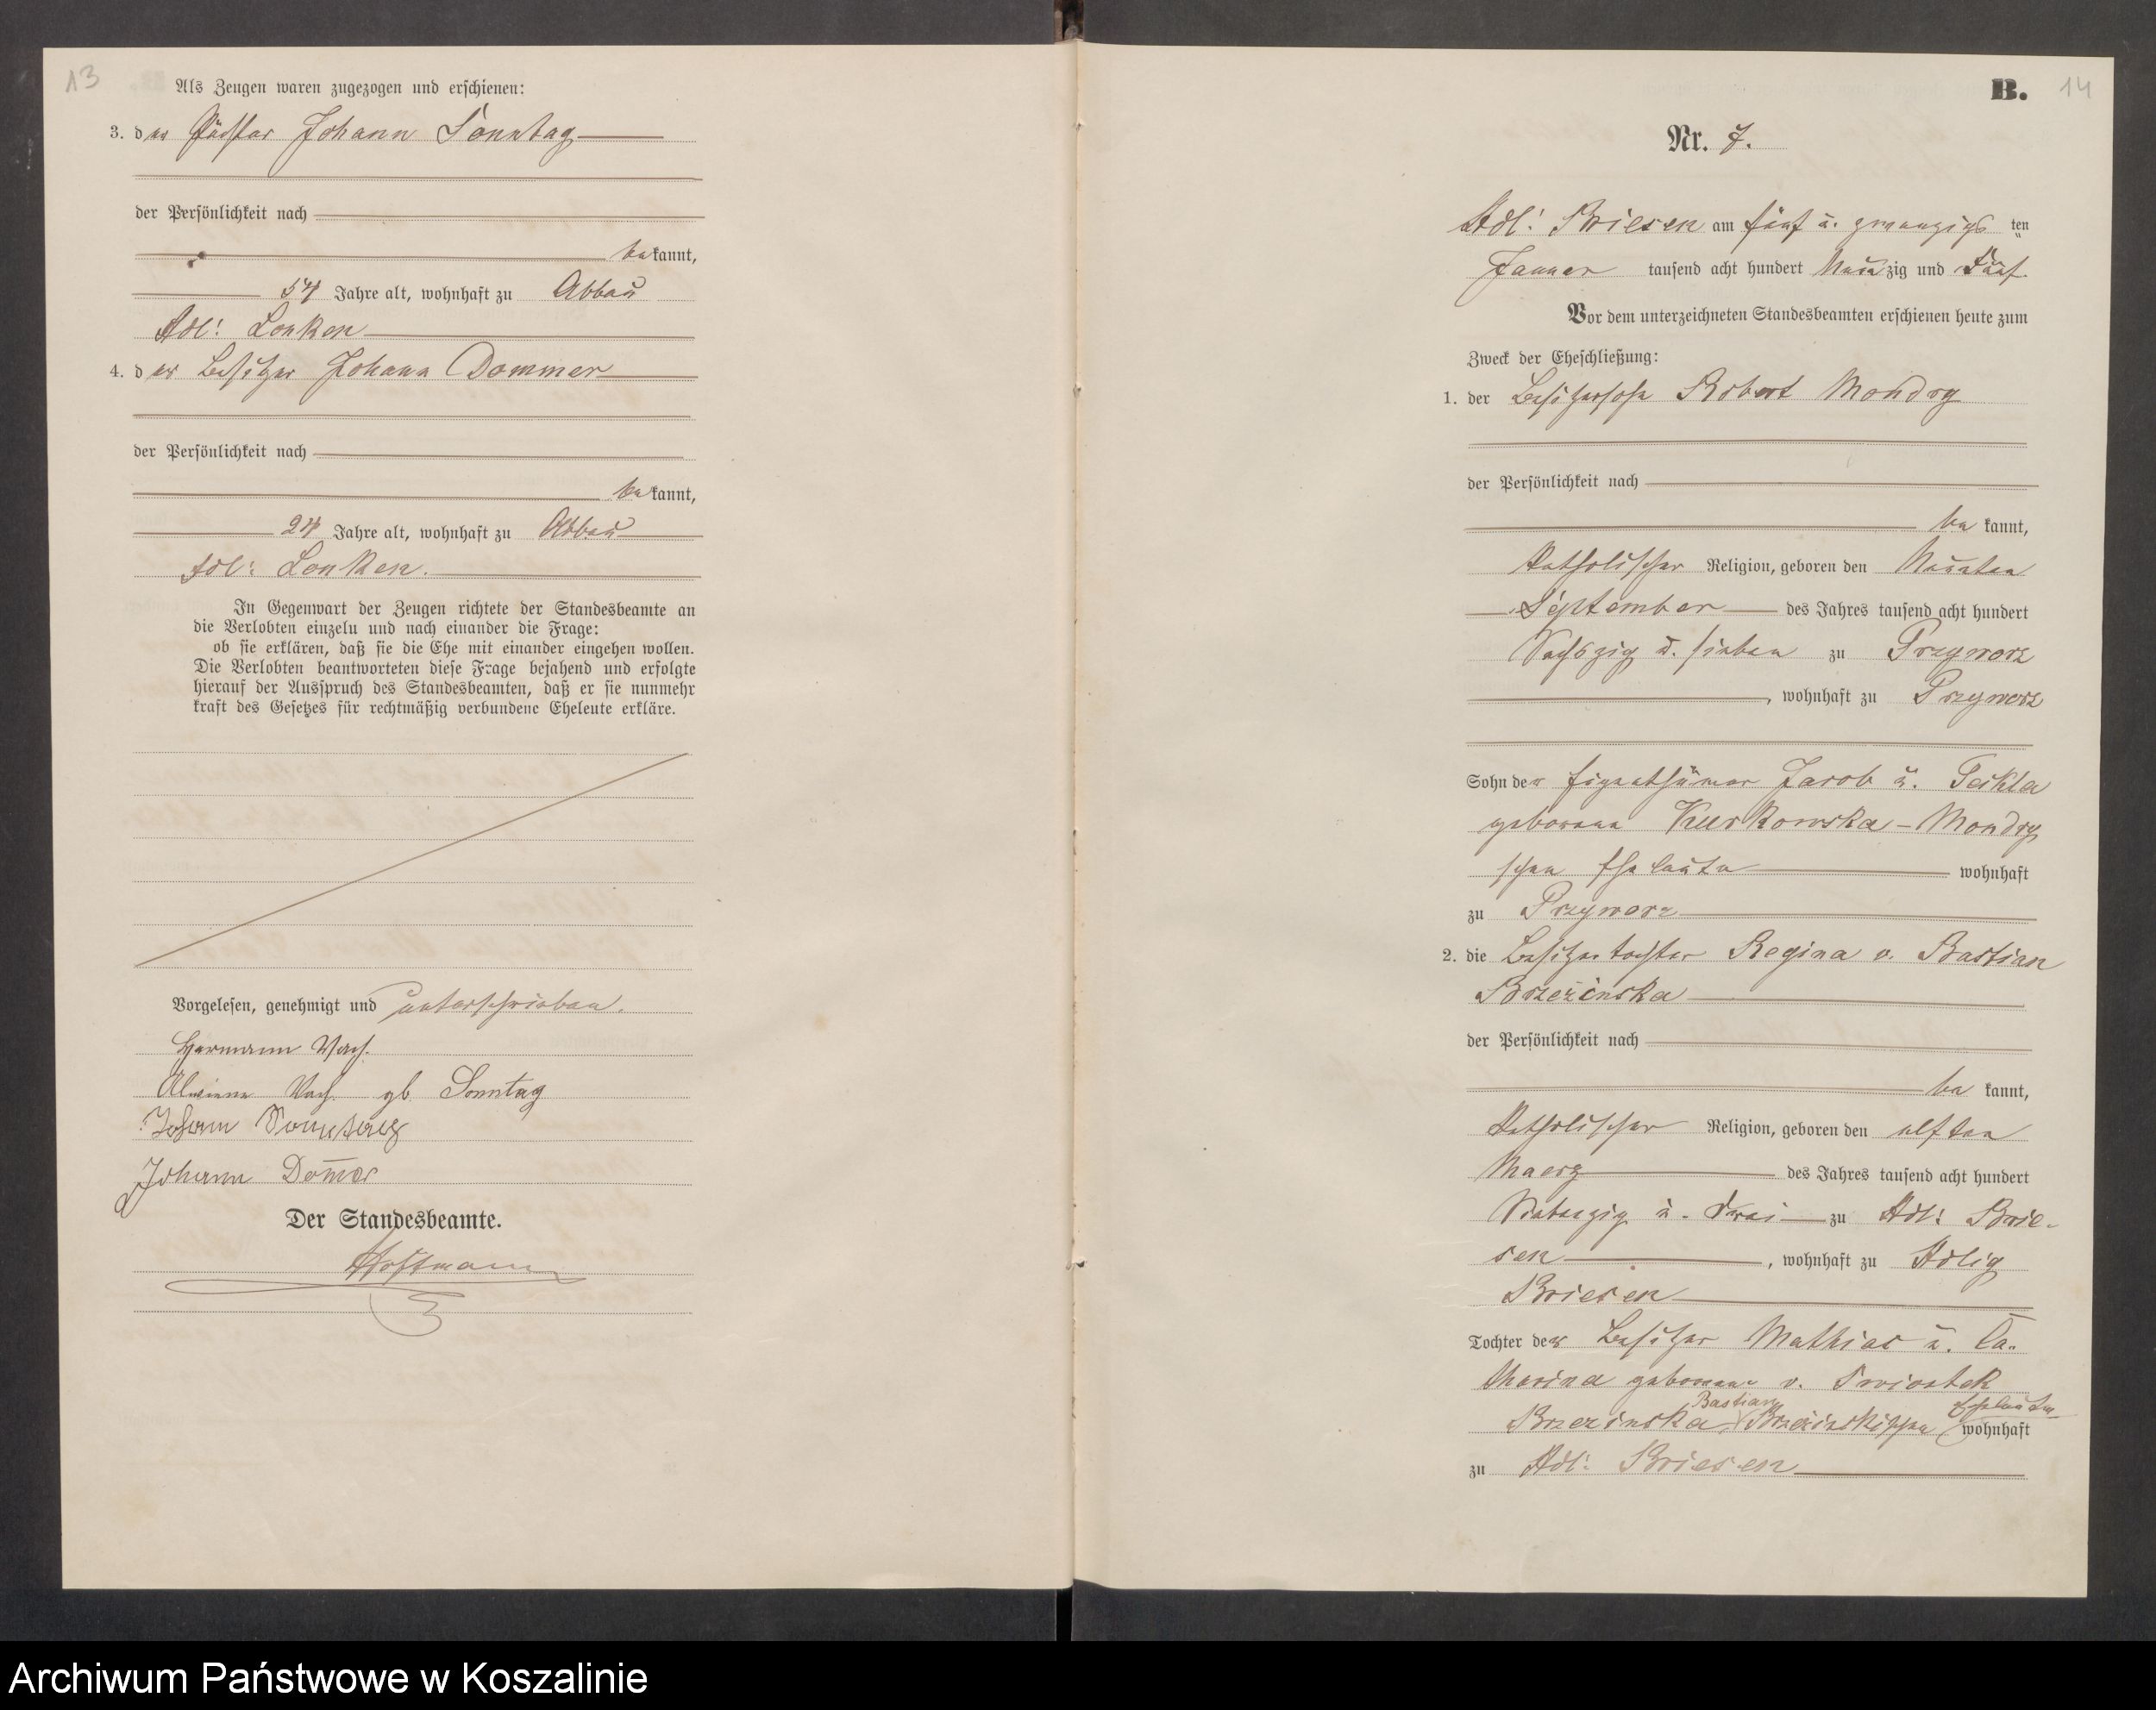 13
Als Zeugen waren zugezogen und erschienen:
3. der Johann Sonntag
der Persönlichkeit nach
bekannt,
54 Jahre alt, wohnhaft zu Abbau
Adl: Lonken
4. der Besitzer Johann Dommer
der Persönlichkeit nach
bekannt,
24 Jahre alt, wohnhaft zu Abbau
Adl: Lonken.
In Gegenwart der Zeugen richtete der Standesbeamte an
die Verlobten einzeln und nach einander die Frage:
ob sie erklären, daß sie die Ehe mit einander eingehen wollen.
Die Verlobten beantworteten diese Frage bejahend und erfolgte
hierauf der Ausspruch des Standesbeamten, daß er sie nunmehr
kraft des Gesetzes für rechtmäßig verbundene Eheleute erkläre.
Vorgelesen, genehmigt und unterschrieben.
Hermann
gb. Sonntag
Johann Sonntag
Johann Dom̄er
Der Standesbeamte.
Hoffmann
B. 14
Nr. 7.
Adl: Briesen am fünf u. zwanzigsten
Januar tausend acht hundert Neunzig und Fünf.
Vor dem unterzeichneten Standesbeamten erschienen heute zum
Zweck der Eheschließung:
1. der Besitzersohn Robert Mondry
der Persönlichkeit nach
bekannt,
Katholischer Religion, geboren den Neunten
September des Jahres tausend acht hundert
Sechszig u. sieben zu Przyworz
, wohnhaft zu Przyworz
Sohn der Eigenthümer Jacob u. Teikla
geborene Kurkowska - Mondry
schen Eheleute wohnhaft
zu Przyworz
2. die Besitzertochter Regina v. Bastian
Brzezinska
der Persönlichkeit nach
bekannt,
Katholischer Religion, geboren den elften
Maerz des Jahres tausend acht hundert
Siebenzig u. drei zu Adl: Brie-
sen , wohnhaft zu Adlig
Briesen
Tochter der Besitzer Mathias u. Ca-
tharina geborene v.
Bastian Eheleute
Brzezinska, Brzezinskischen wohnhaft
zu Adl: Briesen
Archiwum Państwowe w Koszalinie